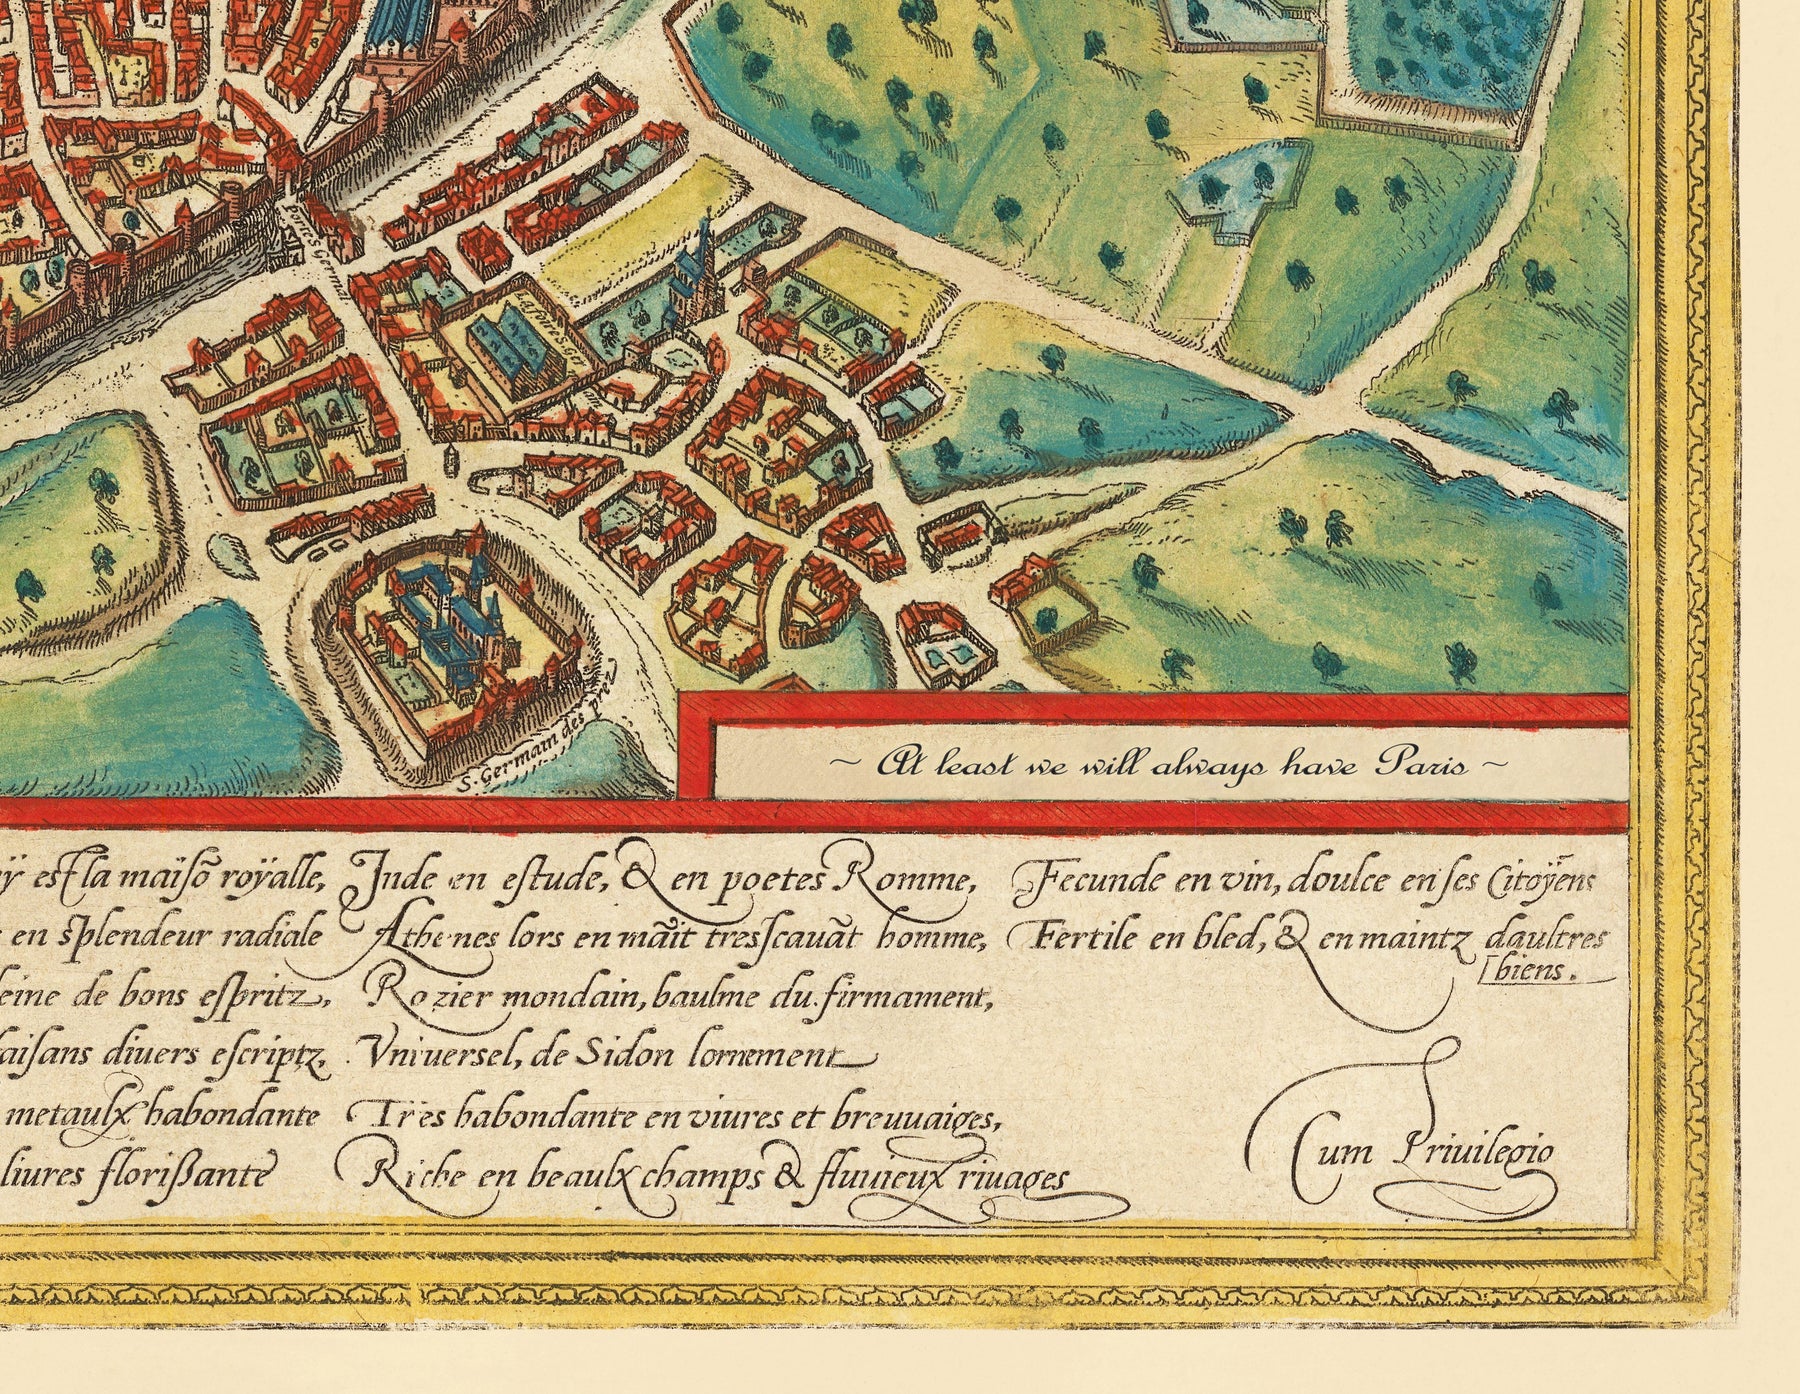 Porte S Germai
La foire S. Ger
main
S. Germain des prez
~ At least we will always have Paris ~
ÿ est la maiſõ roÿalle,
en ſplendeur radiale
eine de bons eſpritz,
aiſans diuers eſcriptz,
metaulx habondante
liures florißante
Inde en eſtude, & en poetes Romme,
Athenes lors en mãit treſſcauãt homme,
Rozier mondain, baulme du. firmament,
Vniuersel, de Sidon lornement
Tres habondante en viures et breuuaiges,
Riche en beaulx champs & fluuieux riuages
Fecunde en vin, doulce en ſes Citoÿens
Fertile en bled, & en maintz daultres
[biens.
Cum Priuilegio